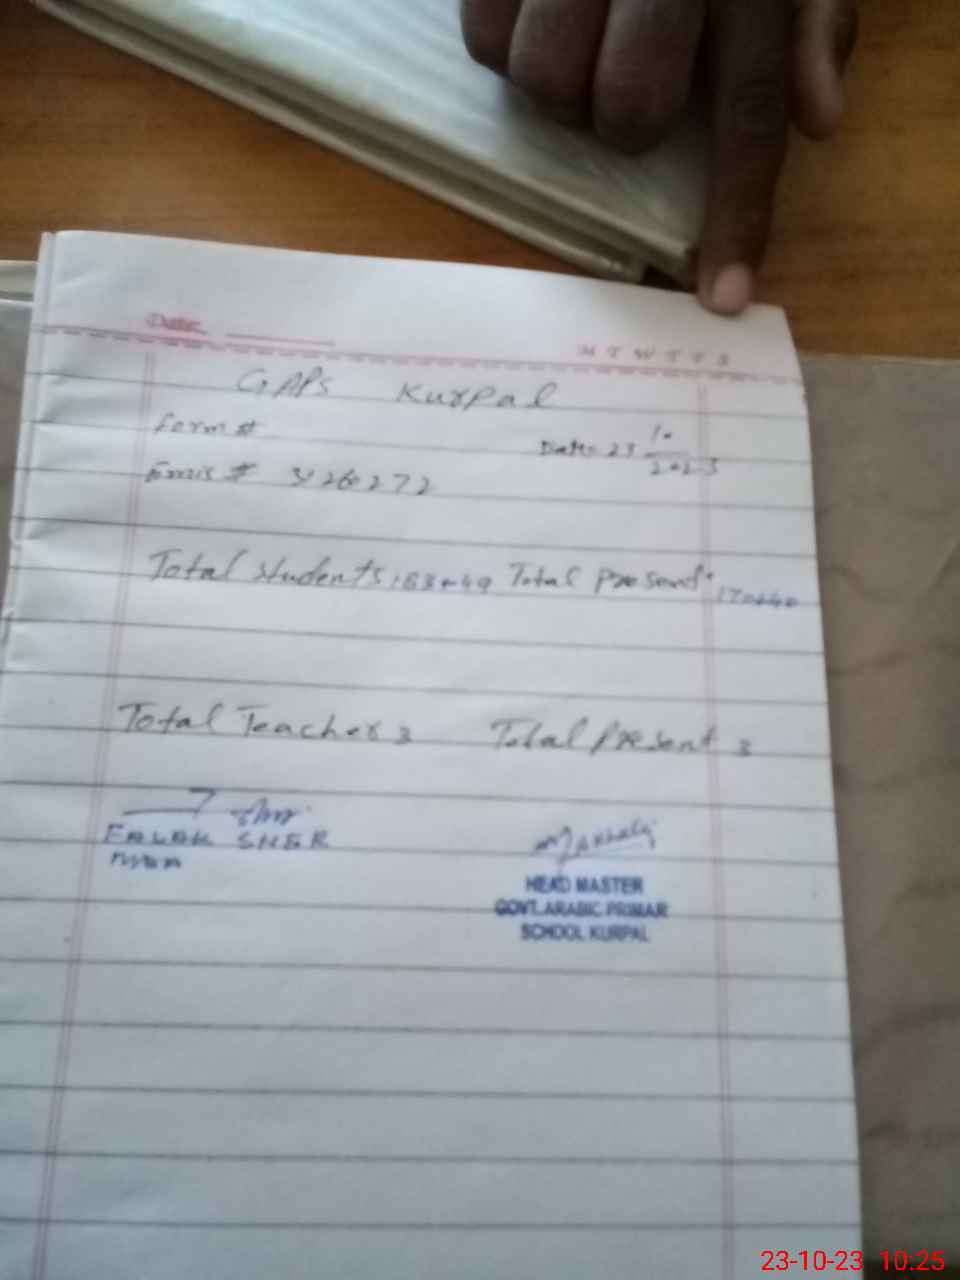 Date
M T W T F S
GAPS Kurpal
Form #
Date 23 10
2023
Emis #
Total students 183+49 Total Present 170+40
Total Teacher 3 Total Present 3
FALAK SHER
HEAD MASTER
GOVT. ARABIC PRIMAR
SCHOOL KURPAL
23-10-23 10:25